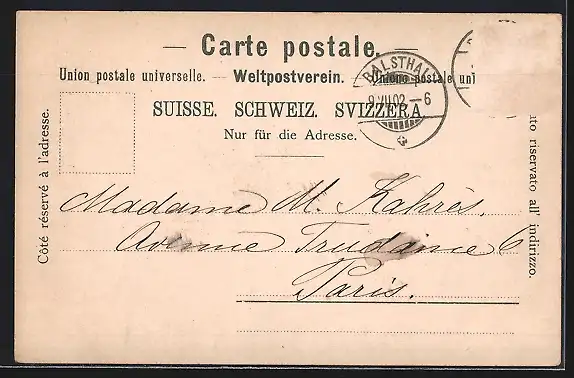 — Carte postale. —
Union postale universelle. — Weltpostverein. — Unione postale uni
SUISSE. SCHWEIZ. SVIZZERA.
Nur für die Adresse.
Côté réservé à l'adresse.
ato riservato all' indirizzo.
BALSTHAL
9.VII.02.–6
Madame M. Kahrès.
Avenue Trudaine 6
Paris.